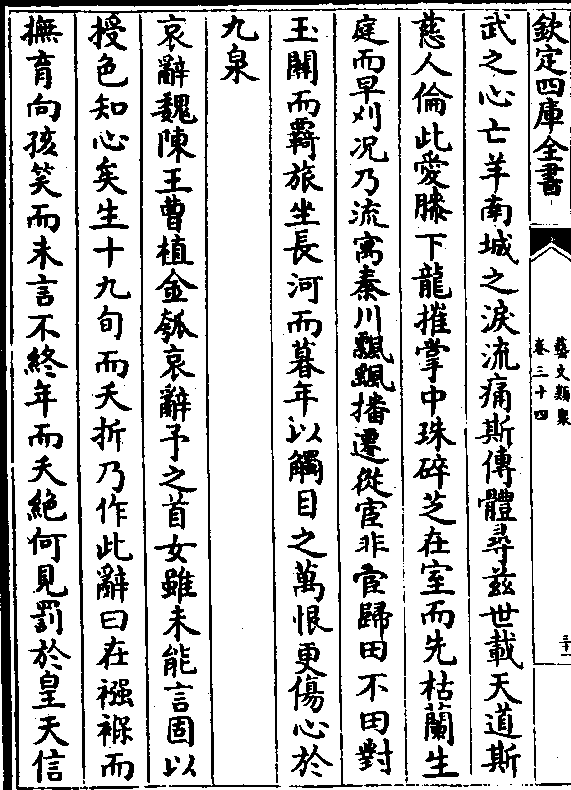 欽定四庫全書
藝文類聚
卷三十四
三十一
武之心亡羊南城之淚流痛斯傳體尋兹世載天道斯
慈人倫此愛膝下龍摧掌中珠碎芝在室而先枯蘭生
庭而早刈况乃流寓秦川飄颻播遷從宦非宦歸田不田對
玉關而羇旅坐長河而暮年以觸目之萬恨更傷心於
九泉
哀辭魏陳王曹植金瓠哀辭予之首女雖未能言固以
授色知心矣生十九旬而夭折乃作此辭曰在襁褓而
撫育向孩笑而未言不終年而夭絶何見罰於皇天信